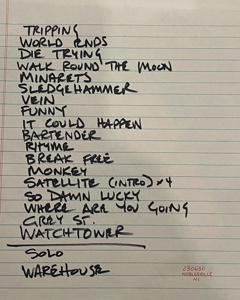 TRIPPING
WORLD ENDS
DIE TRYING
WALK ROUND THE MOON
MINARETS
SLEDGEHAMMER
VEIN
FUNNY
IT COULD HAPPEN
BARTENDER
RHYME
BREAK FREE
MONKEY
SATELLITE (INTRO) x4
SO DAMN LUCKY
WHERE ARE YOU GOING
GREY ST.
WATCHTOWER
SOLO
WAREHOUSE
230630
NOBLESVILLE
N1